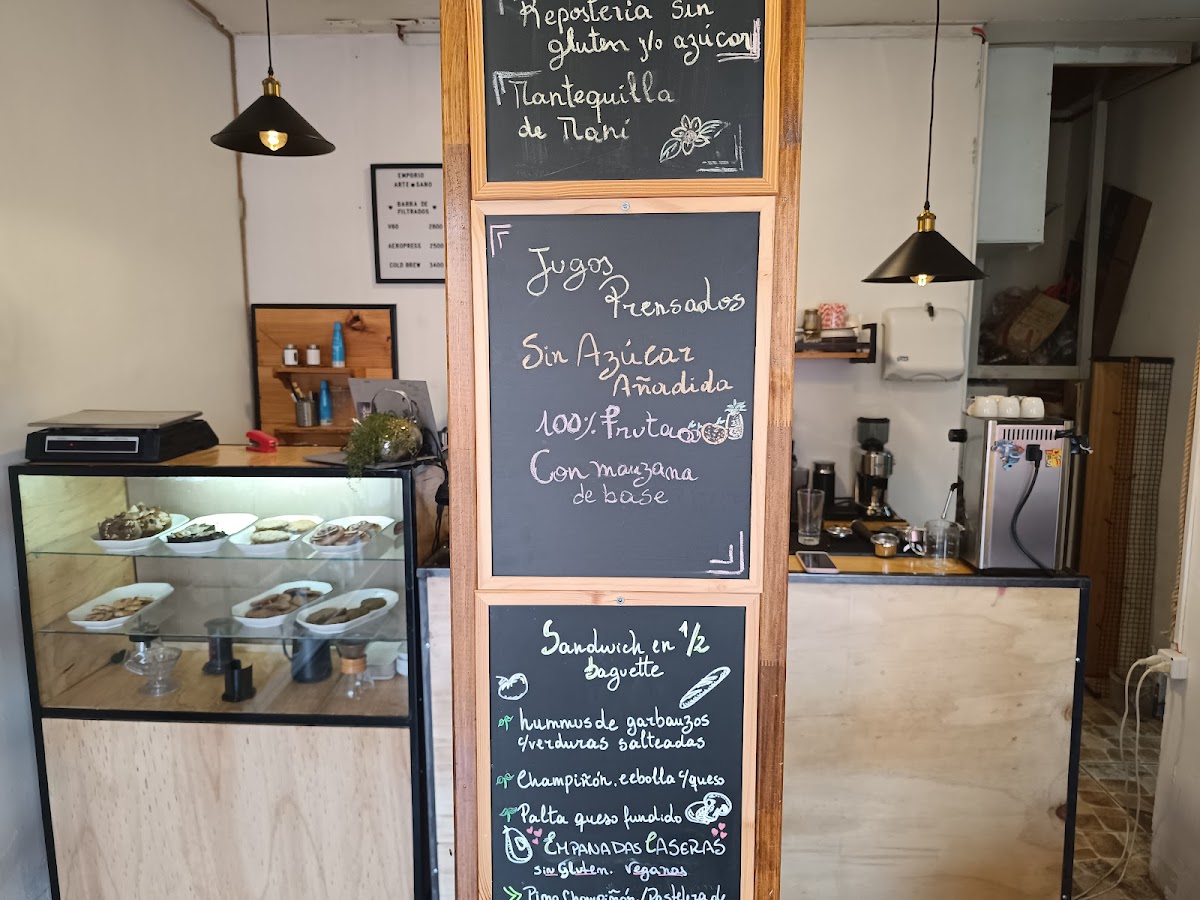 Repostería sin
gluten y/o azúcar
Mantequilla
de Maní
EMPORIO
ARTESANO
BARRA DE
FILTRADOS
V60 2800
AEROPRESS 2500
COLD BREW 3400
Jugos
Prensados
Sin Azúcar
Añadida
100% Fruta
Con manzana
de base
Sandwich en 1/2
baguette
hummus de garbanzos
c/verduras salteadas
Champiñón, cebolla y queso
Palta queso fundido
EMPANADAS CASERAS
sin Gluten. Veganas
Pino Champiñón/Pastelera de